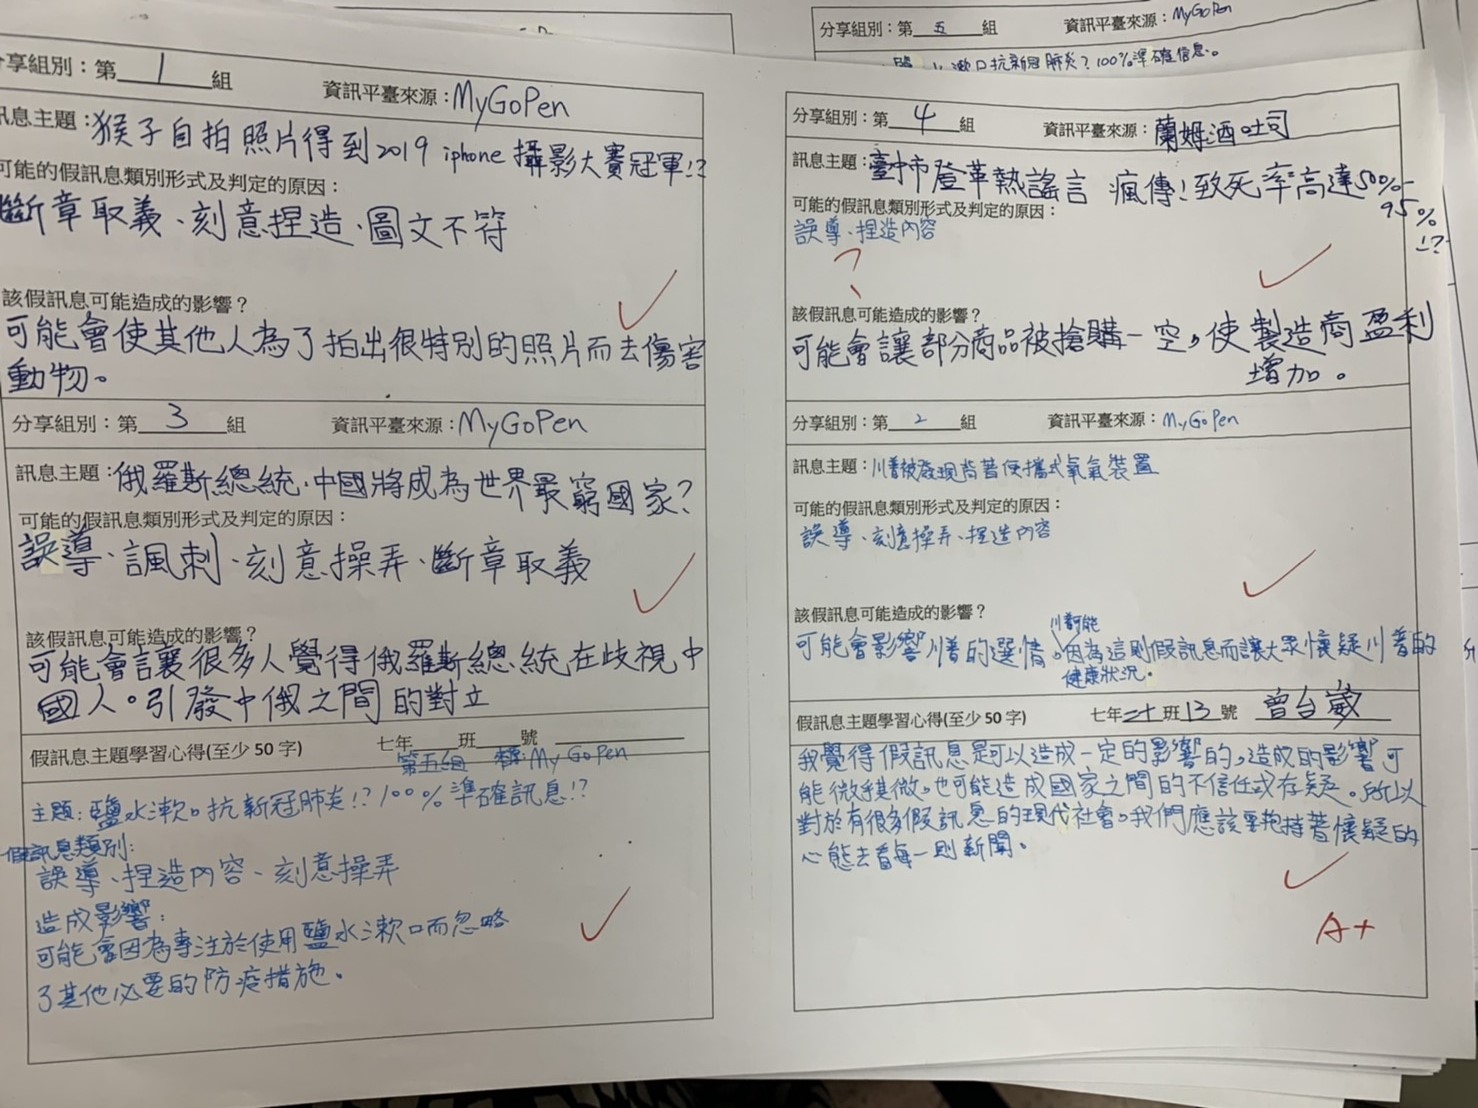 分享組別：第 五 組 資訊平臺來源：MyGoPen
漱口抗新冠肺炎？100%準確信息。
享組別：第 1 組 資訊平臺來源：MyGoPen
訊息主題：猴子自拍照片得到2019 iphone 攝影大賽冠軍!?
可能的假訊息類別形式及判定的原因：
斷章取義、刻意捏造、圖文不符
該假訊息可能造成的影響？
可能會使其他人為了拍出很特別的照片而去傷害
動物。
分享組別：第 3 組 資訊平臺來源：MyGoPen
訊息主題：俄羅斯總統、中國將成為世界最窮國家?
可能的假訊息類別形式及判定的原因：
誤導、諷刺、刻意操弄、斷章取義
該假訊息可能造成的影響？
可能會讓很多人覺得俄羅斯總統在歧視中
國人。引發中俄之間的對立
假訊息主題學習心得(至少 50 字) 七年 班 號
第五組 MyGoPen
主題：鹽水漱口抗新冠肺炎!? 100%準確訊息!?
假訊息類別：
誤導、捏造內容、刻意操弄
造成影響：
可能會因為專注於使用鹽水漱口而忽略
了其他必要的防疫措施。
分享組別：第 4 組 資訊平臺來源：蘭姆酒吐司
訊息主題：臺中市登革熱謠言 瘋傳！致死率高達50%-
95%
!?
可能的假訊息類別形式及判定的原因：
誤導、捏造內容
？
該假訊息可能造成的影響？
可能會讓部分商品被搶購一空，使製造商盈利
增加。
分享組別：第 2 組 資訊平臺來源：MyGoPen
訊息主題：川普被發現背著便攜式氧氣裝置
可能的假訊息類別形式及判定的原因：
誤導、刻意操弄、捏造內容
該假訊息可能造成的影響？
川普可能
可能會影響川普的選情。因為這則假訊息而讓大眾懷疑川普的
健康狀況。
假訊息主題學習心得(至少 50 字) 七年 二十 班 13 號 曾台崴
我覺得假訊息是可以造成一定的影響的，造成的影響可
能微乎其微，也可能造成國家之間的不信任或存疑。所以
對於有很多假訊息的現代社會，我們應該要抱持著懷疑的
心態去看每一則新聞。
A+